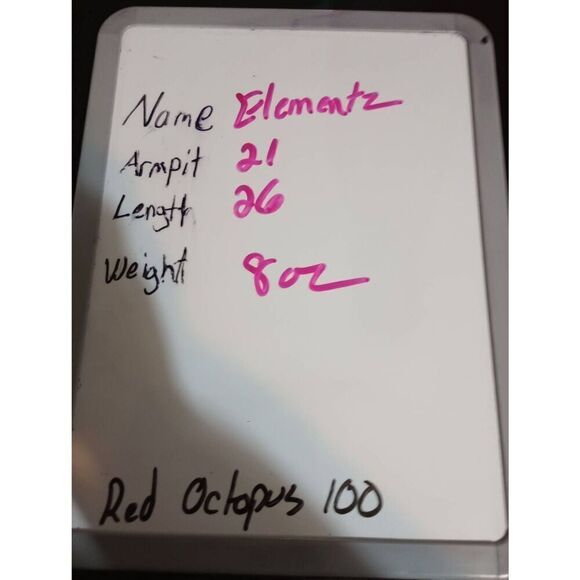 Name Elementz
Armpit 21
Length 26
Weight 8oz
Red Octopus 100